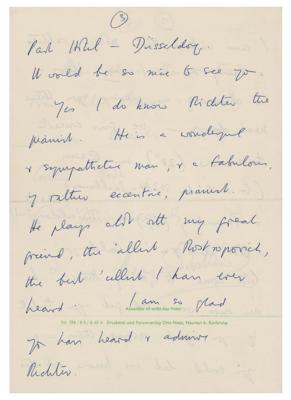 3
Park Hotel – Düsseldorf.
It would be so nice to see yo.
Yes I do know Richter the
pianist. He is a wonderful
& sympathetic man, & a fabulous,
if rather eccentric, pianist.
He plays a lot with my great
friend, the 'cellist Rostropovich,
the best 'cellist I have ever
heard. I am so glad
you have heard & admire
Richter.